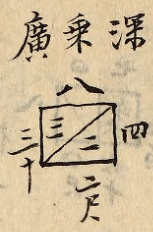 深乗廣
八
四
三
二
三十
二尺